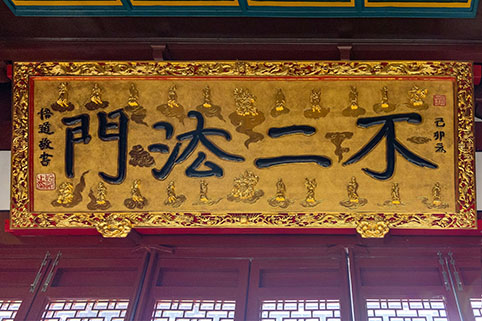 己卯冬
不二法門
悟道敬書